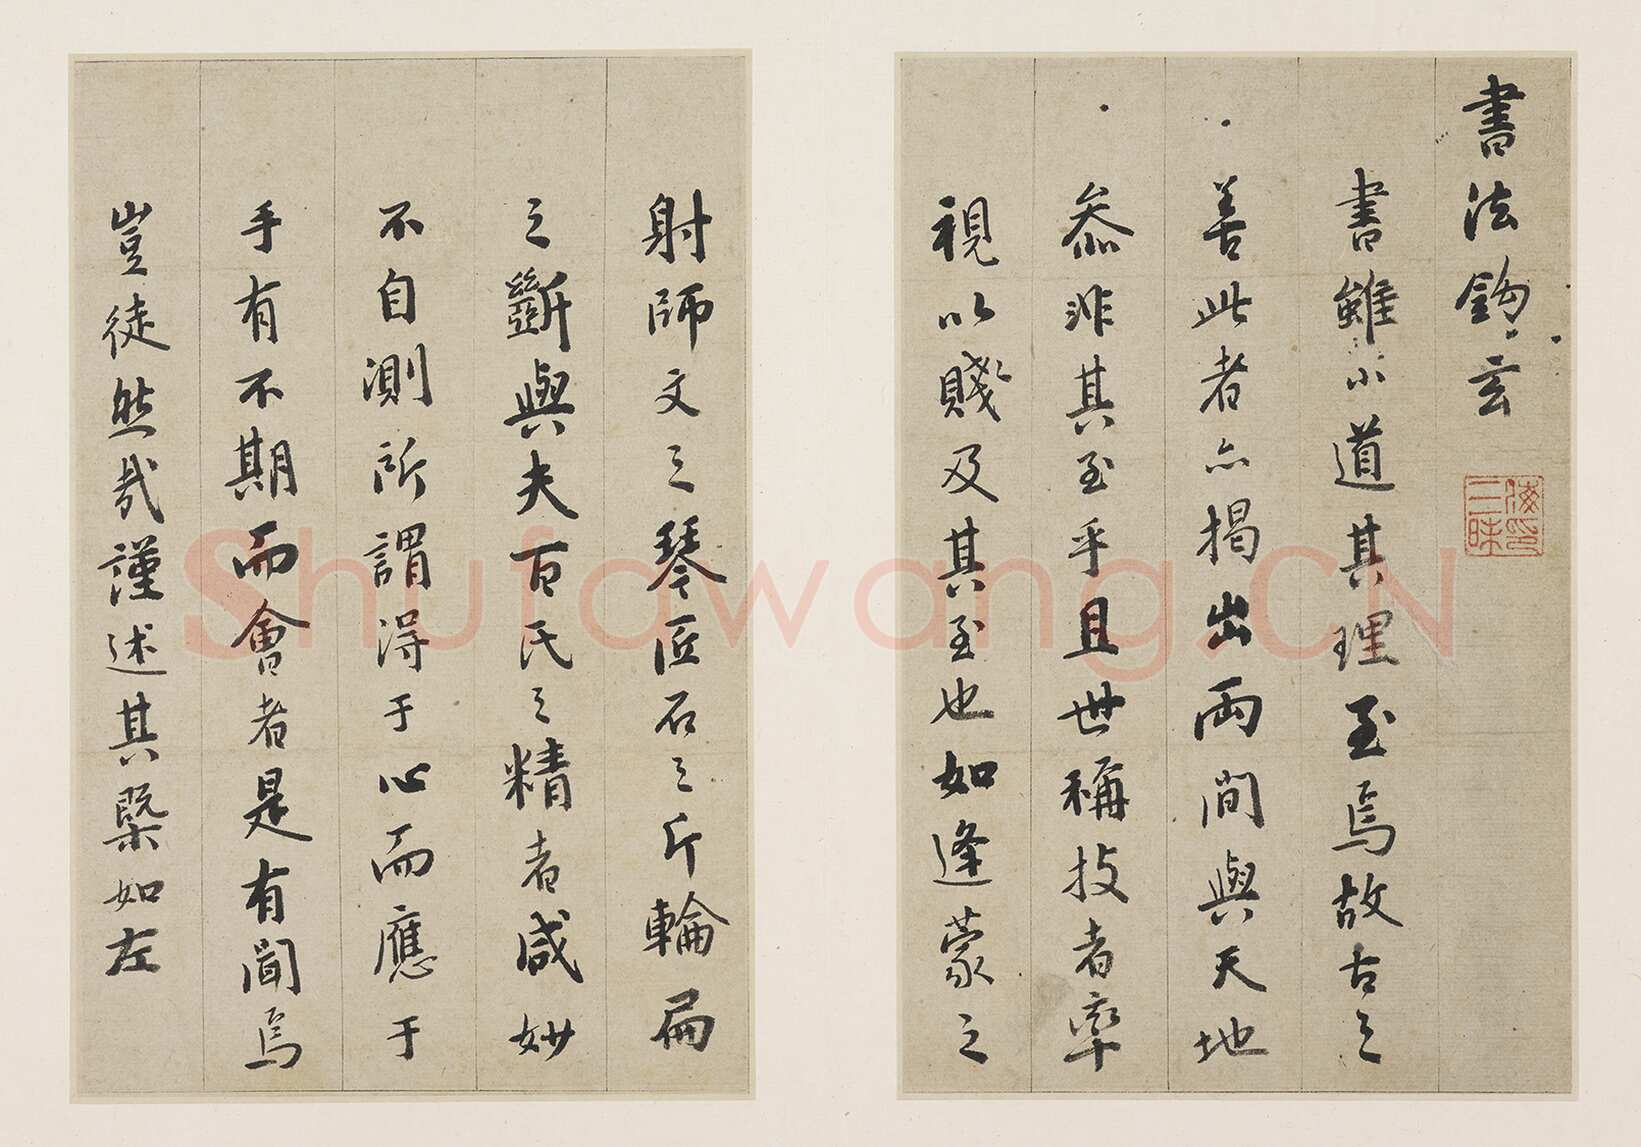 書法鈎玄
海印三昧
書雖小道其理至焉故古之
善此者亦揭出兩間與天地
叅非其至乎且世稱技者率
視以賤及其至也如逢蒙之
射師文之琴匠石之斤輪扁
之斵與夫百氏之精者咸妙
不自測所謂得于心而應于
手有不期而會者是有聞焉
豈徒然哉謹述其槩如左
Shufawang.CN